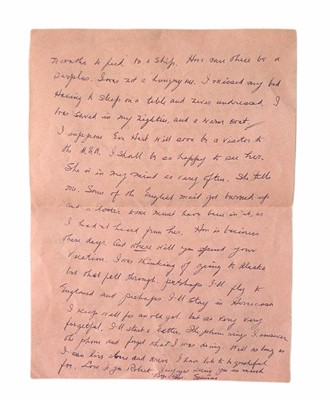 months to find to a ship. How can there be a
purpose. I was not a hungry me. I missed my bed
Having to sleep on a table and never undressed. I
was saved in my nighties, and a warm coat.
I suppose Eva Hart will soon be a visitor to
the U.S.A. I shall be so happy to see her.
She is in my mind so very often. She tells
me. Some of the English mail got burned up
and a letter was must have been in it, as
I had not heard from her. How is business
these days. And where will you spend your
vacation. I was thinking of going to Alaska
but that fell through, perhaps I'll fly to
England and perhaps I'll stay in Hurricane
I keep well for an old gal. but so very very
forgetful, I'll start a letter. The phone rings I answer
the phone and forget what I was doing. Well as long as
I can live alone and work I have lots to be grateful
for. Love to you Robert